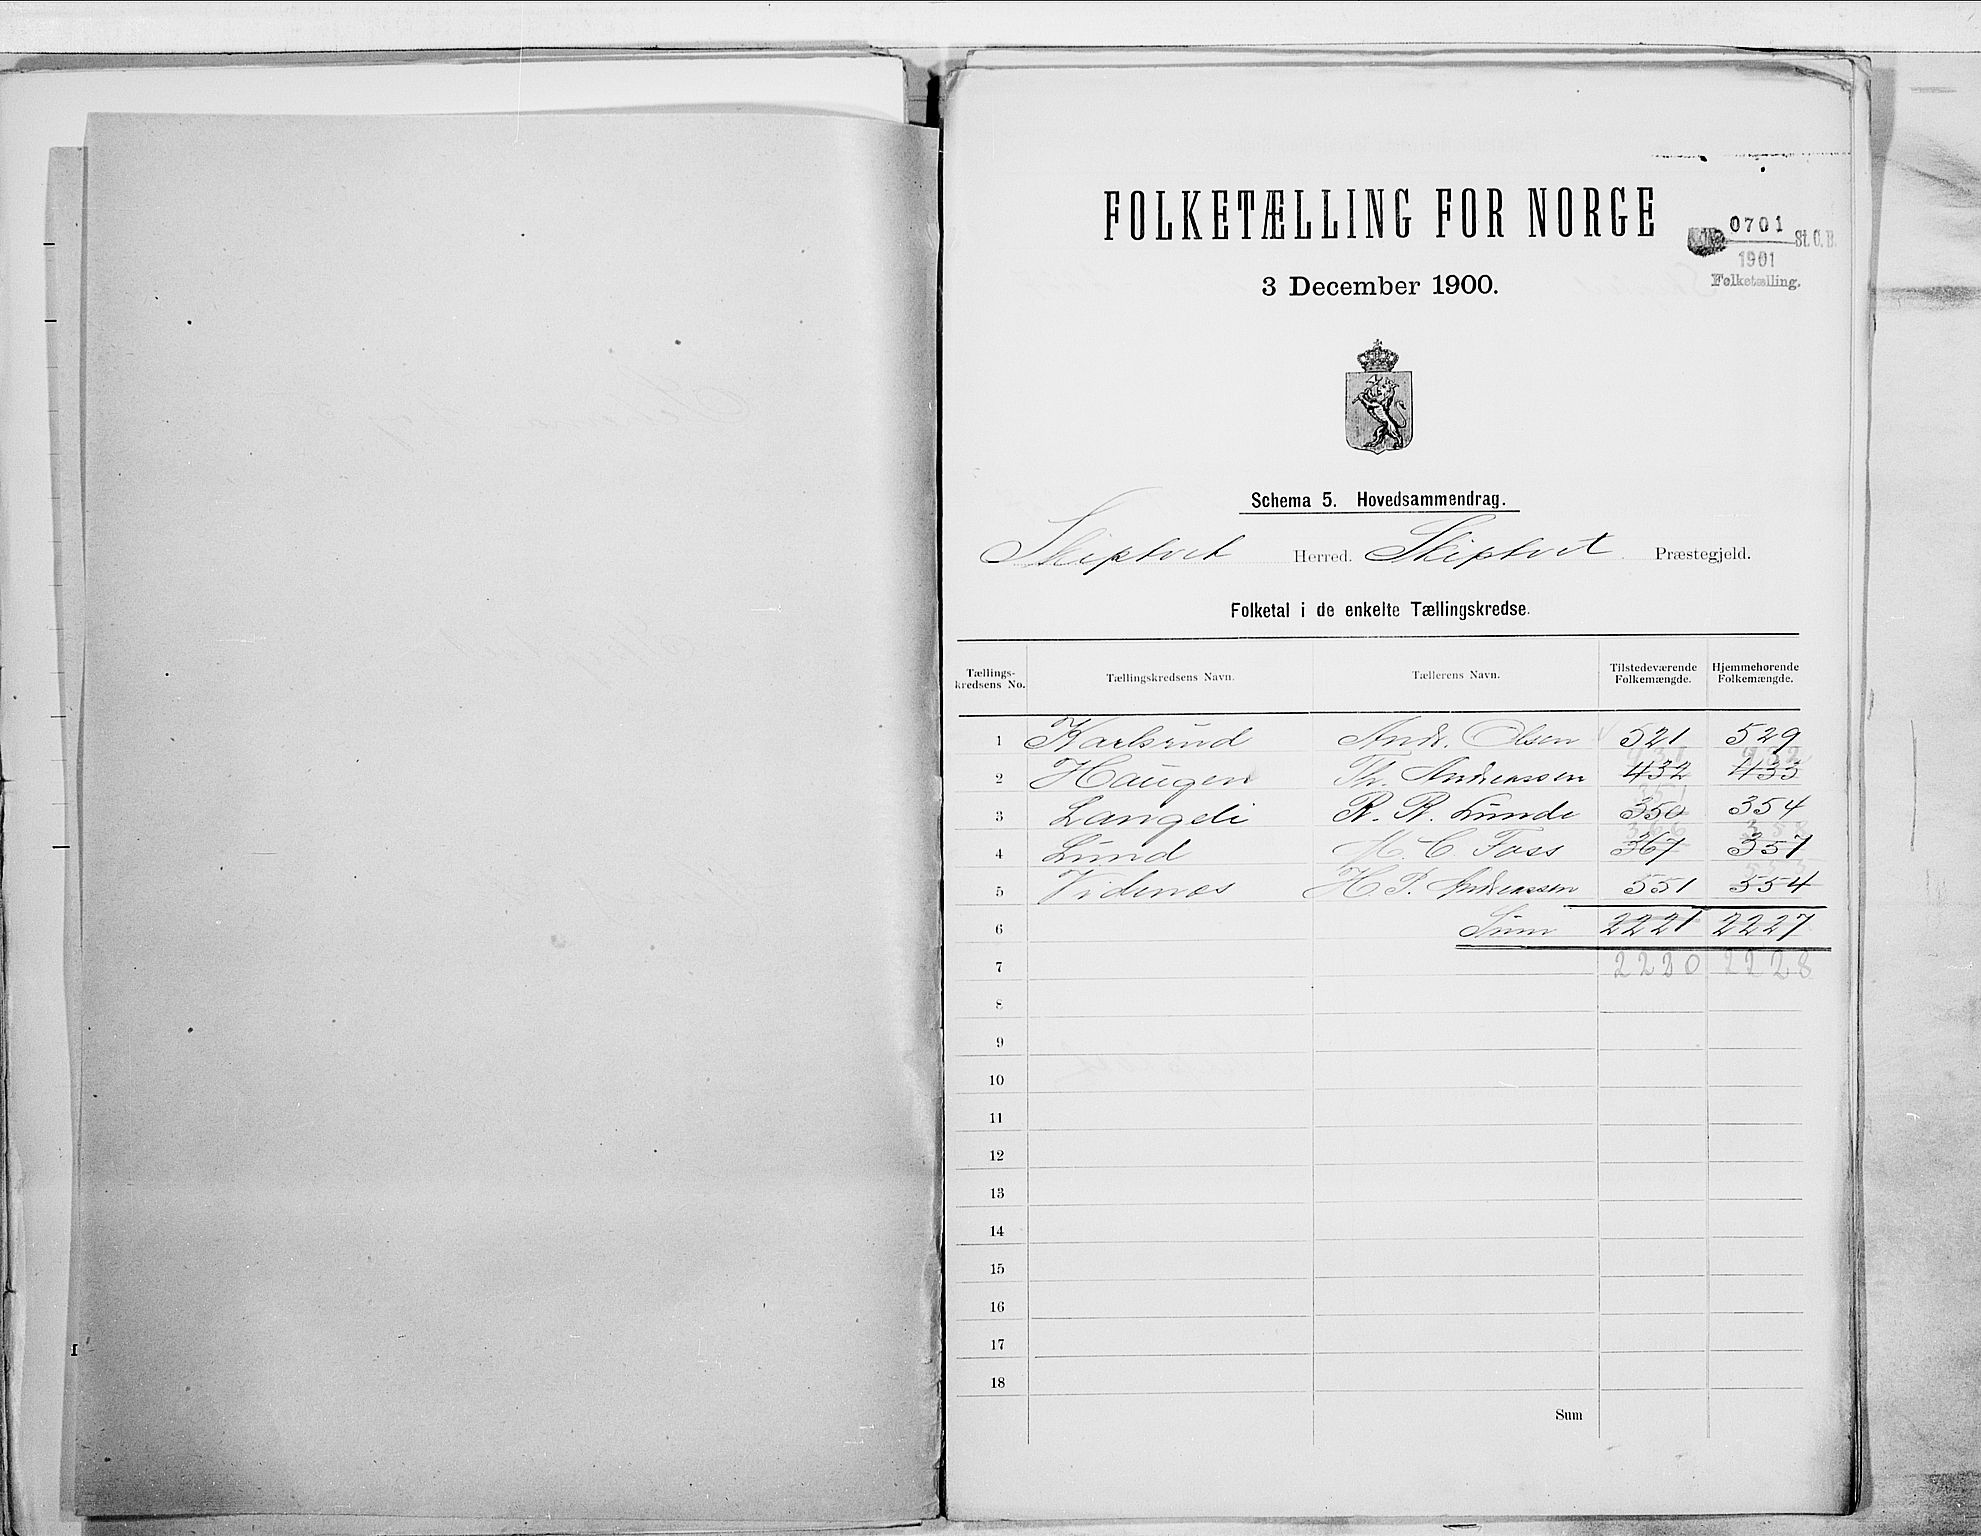 FOLKETÆLLING FOR NORGE
0701
St. C. B.
1901
Folketælling.
3 December 1900.
Schema 5. Hovedsammendrag.
Skiptvet Herred. Skiptvet Præstegjeld.
Folketal i de enkelte Tællingskredse.
Tællings-kredsens No. Tællingskredsens Navn. Tællerens Navn. Tilstedeværende Folkemængde. Hjemmehørende Folkemængde.
1 Karlsrud Andr. Olsen 521 529
2 Haugen Th. Andreassen 432 433
3 Langeli R. R. Lunde 350 354
4 Lund M. C. Foss 367 357
5 Videnes H. P. Andreassen 551 554
6 Sum 2221 2227
7 2220 2228
8
9
10
11
12
13
14
15
16
17
18
Sum